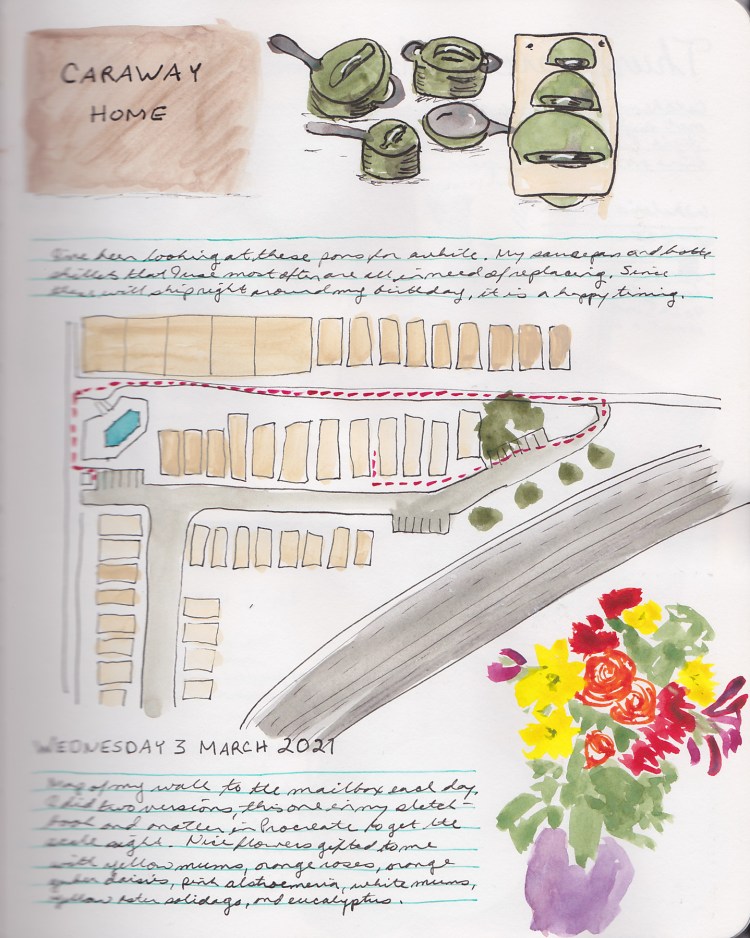 CARAWAY
HOME
I've been looking at these pans for awhile. My saucepan and both
skillets that I use most often are all in need of replacing. Since
these will ship right around my birthday, it is a happy timing.
WEDNESDAY 3 MARCH 2021
Map of my walk to the mailbox each day.
I did two versions, this one in my sketch-
book and another in Procreate to get the
scale right. Nice flowers gifted to me
with yellow mums, orange roses, orange
gerber daisies, pink alstroemeria, white mums,
yellow aster solidago, and eucalyptus.